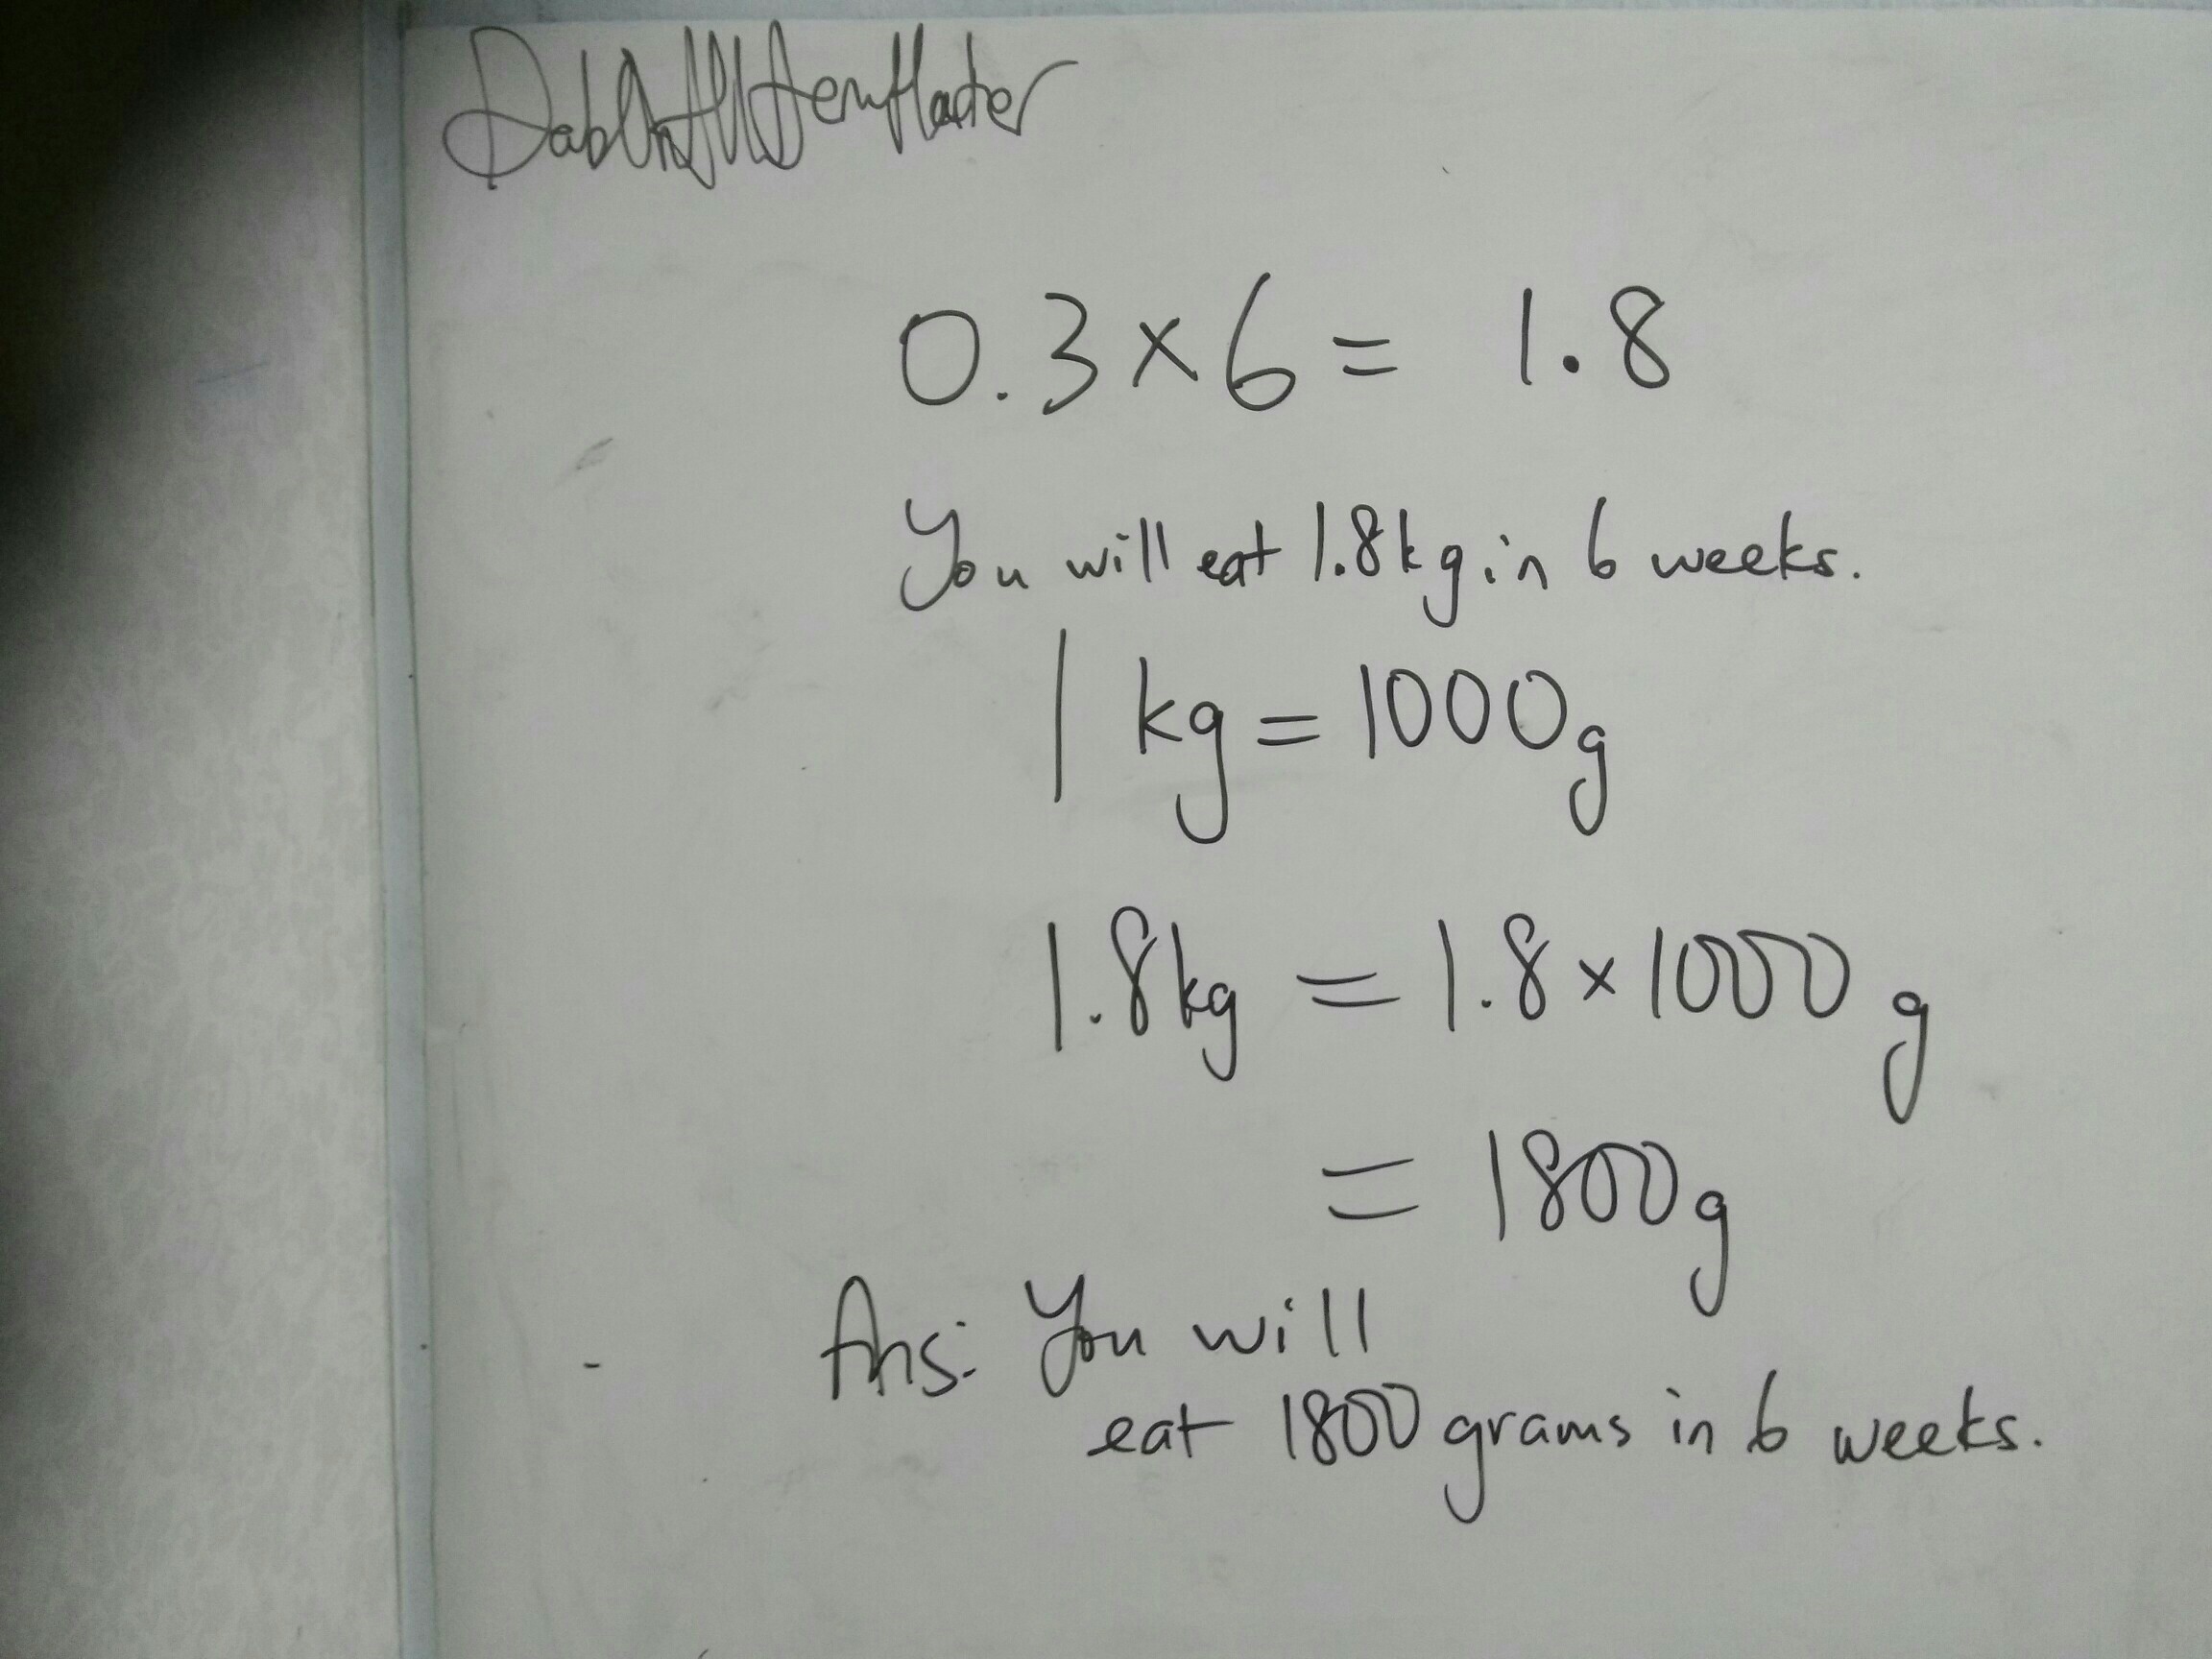 0.3 × 6 = 1.8
You will eat 1.8kg in 6 weeks.
1 kg = 1000g
1.8kg = 1.8 × 1000 g
= 1800g
Ans: You will
eat 1800 grams in 6 weeks.